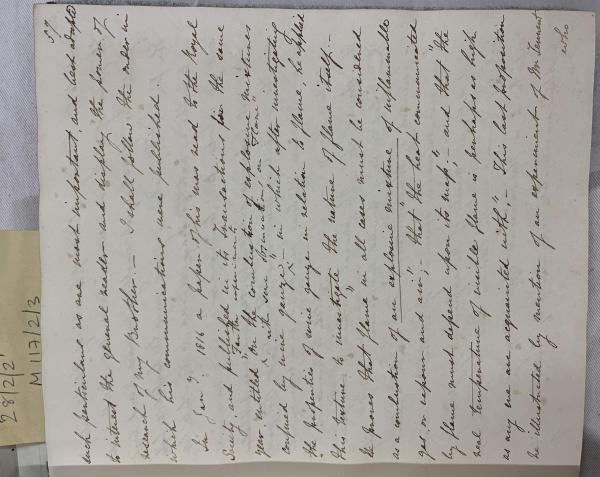 59.
such particulars as are most important, and best adapted
to interest the general reader and display the powers of
research of my Brother. – I shall follow the order in
which his communications were published.
In Jany. 1816 a paper of his was read to the Royal
Society and published in its Transactions for the same
"Farther experiments
year entitled "On the combustion of explosive mixtures
with some on Flame"
confined by wire gauze, – in which after investigating
the properties of wire gauze in relation to flame, he applied
this texture to investigate the nature of flame itself. –
He proves "That flame in all cases must be considered
as a combustion of an explosive mixture of inflammable
gas or vapour and air"; – "That the heat communicated
by flame must depend upon its mass"; – and that "the
real temperature of visible flame is perhaps as high
as any we are acquainted with". – This last proposition
he illustrated by mention of an experiment of Mr Tennant
who
28/2/2'
M 117/2/3